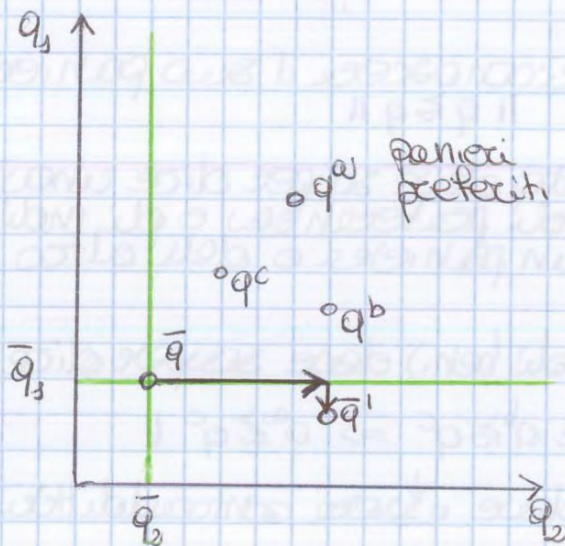 q₁
qᵃ panieri
preferiti
qᶜ
qᵇ
q̄
q̄₁
q̄'
q̄₂
q₂